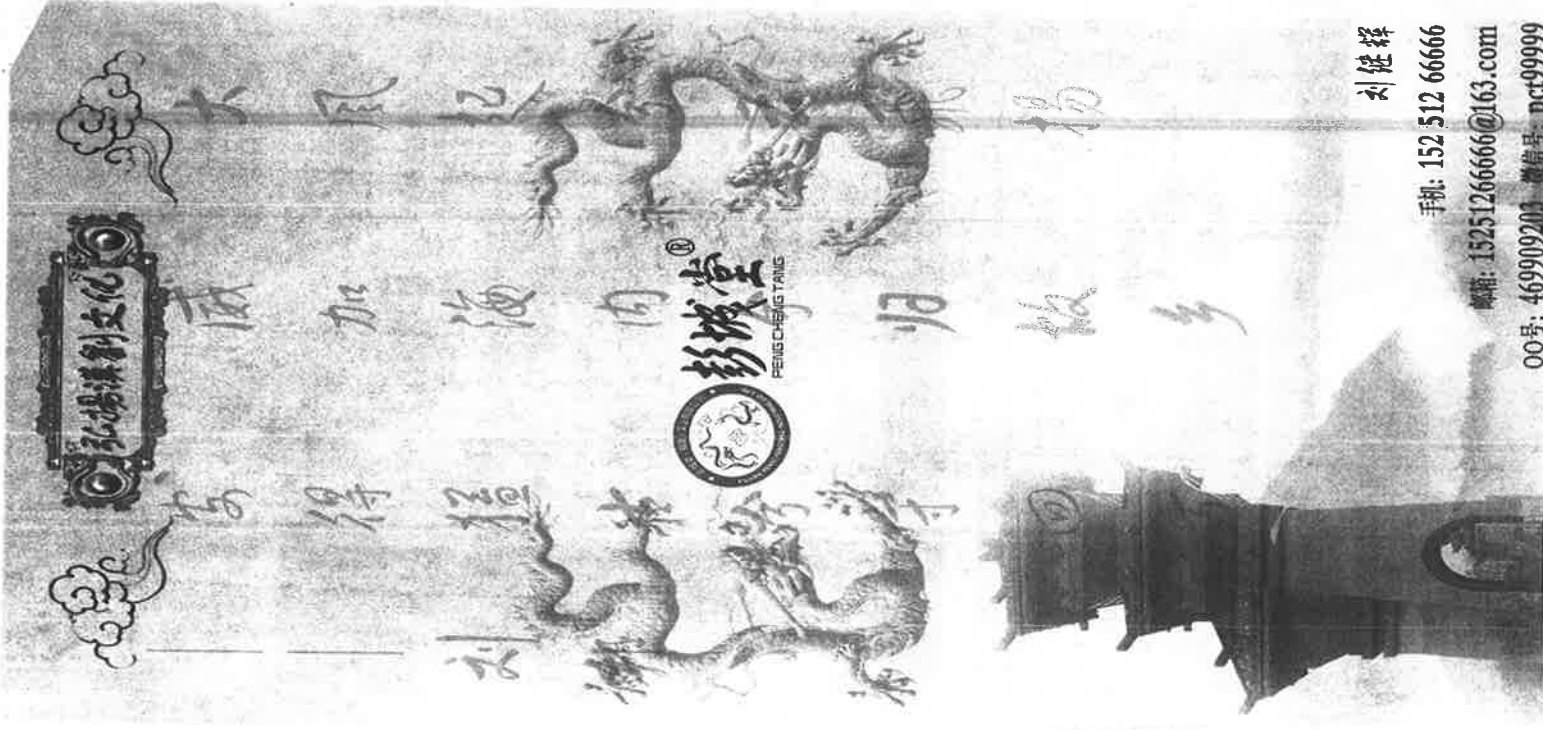 弘揚漢劉文化
大风起 扬
威加海内兮归故乡
安得猛士兮守
——刘
彭城堂®
PENGCHENGTANG
手机: 152 512 66666
邮箱: 15251266666@163.com
QQ号: 469909203 微信号: pct99999